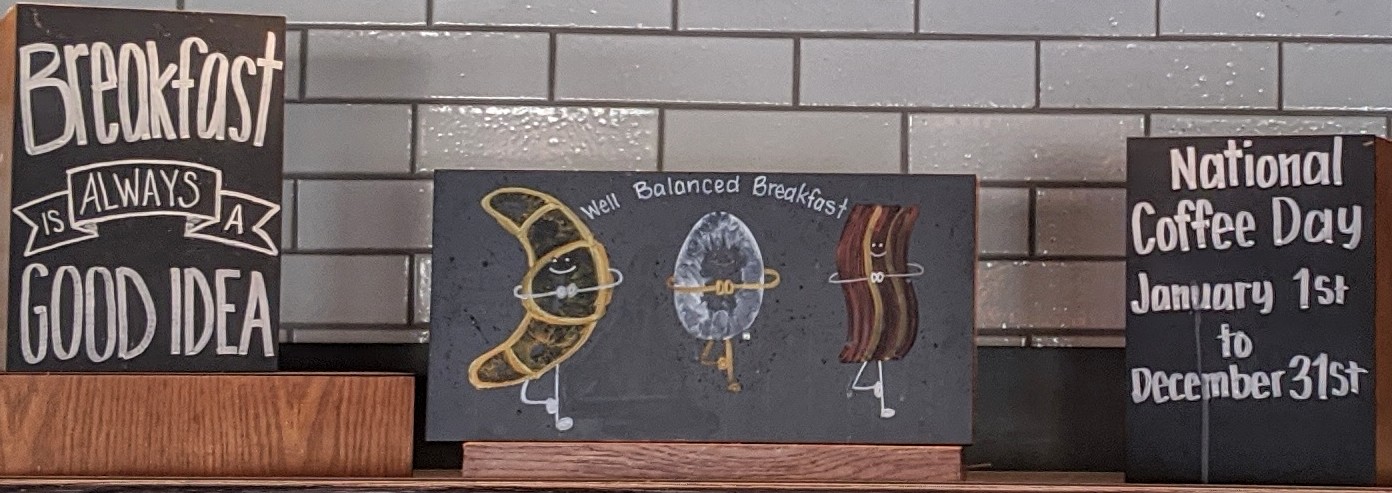 Breakfast
IS ALWAYS A
GOOD IDEA
Well Balanced Breakfast
National
Coffee Day
January 1st
to
December 31st